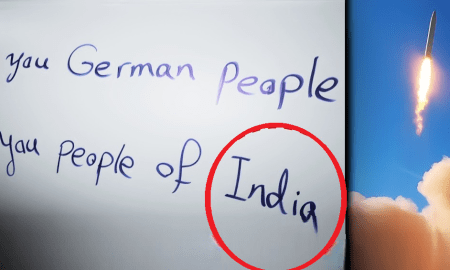 you German People
you People of India